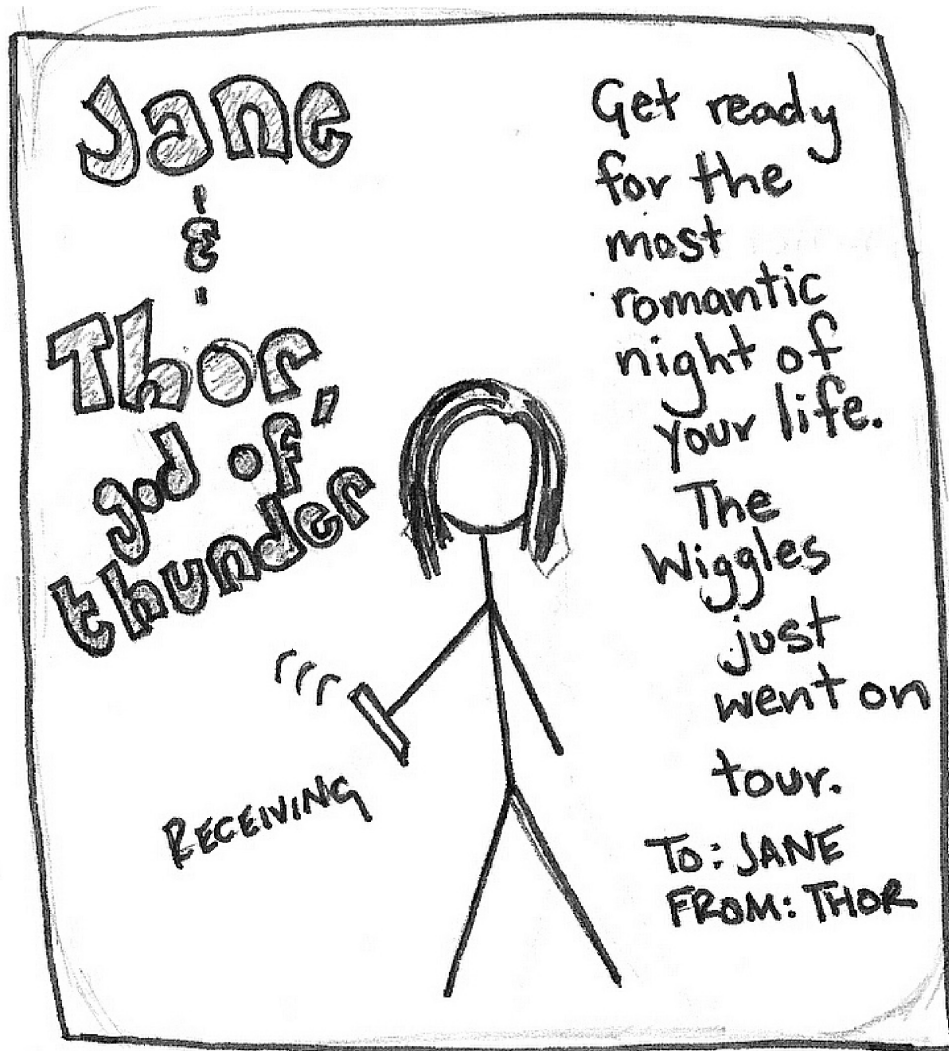 Jane
&
Thor,
god of
thunder
RECEIVING
Get ready
for the
most
romantic
night of
your life.
The
Wiggles
just
went on
tour.
TO: JANE
FROM: THOR